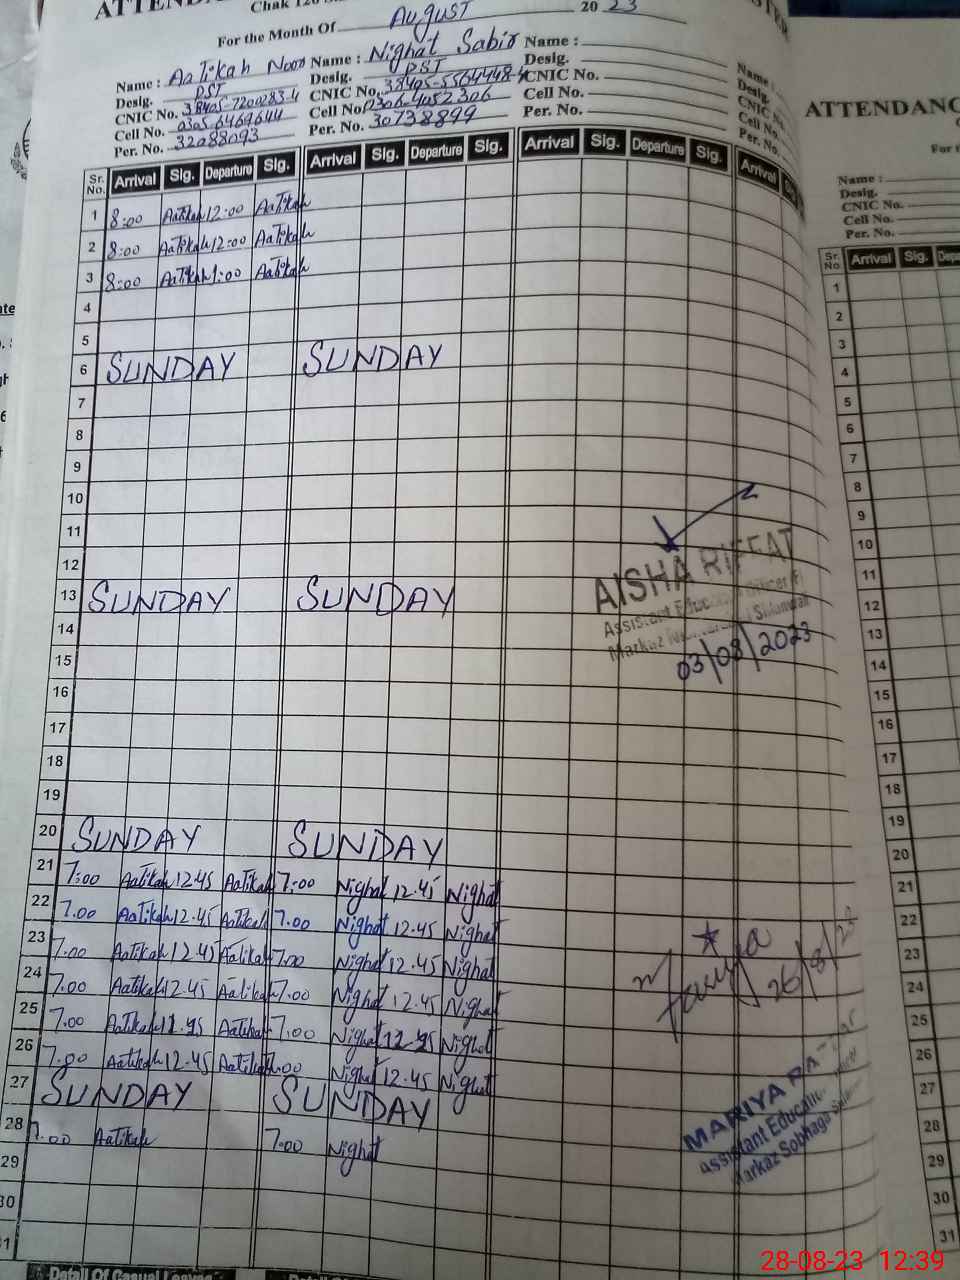 Chak 126
For the Month Of August 20 23
Name : Aatikah Noor Name : Nighat Sabir Name :
Desig. PST Desig. PST Desig.
CNIC No. 38405-7200283-4 CNIC No. 38405-5564448-4 CNIC No.
Cell No. 0305 6469644 Cell No. 0306-4052306 Cell No.
Per. No. 32088093 Per. No. 30738899 Per. No.
Sr. No. Arrival Sig. Departure Sig. Arrival Sig. Departure Sig. Arrival Sig. Departure Sig. Arrival
1 8:00 Aatikah 12:00 Aatikah
2 8:00 Aatikah 12:00 Aatikah
3 8:00 Aatikah 1:00 Aatikah
4
5
6 SUNDAY SUNDAY
7
8
9
10
11
12
13 SUNDAY SUNDAY
14
15
16
17
18
19
20 SUNDAY SUNDAY
21 7:00 Aatikah 12.45 Aatikah 7:00 Nighat 12.45 Nighat
22 7.00 Aatikah 12.45 Aatikah 7.00 Nighat 12.45 Nighat
23 7.00 Aatikah 12.45 Aatikah 7.00 Nighat 12.45 Nighat
24 7.00 Aatikah 12.45 Aatikah 7.00 Nighat 12.45 Nighat
25 7.00 Aatikah Aatikah 7:00 Nighat Nighat
26 7.00 Aatikah 12.45 Aatikah 7.00 Nighat 12.45 Nighat
27 SUNDAY SUNDAY
28 7.00 Aatikah 7:00 Nighat
29
30
31
AISHA RIFFAT
Assistant Education Officer
Markaz
03/08/2023
26/8/23
MARIYA
Assistant Education
Markaz Sobhaga
Detail Of Casual Leaves
ATTENDANC
Name :
Desig.
CNIC No.
Cell No.
Per. No.
Sr. No. Arrival Sig.
1
2
3
4
5
6
7
8
9
10
11
12
13
14
15
16
17
18
19
20
21
22
23
24
25
26
27
28
29
30
31
28-08-23 12:39